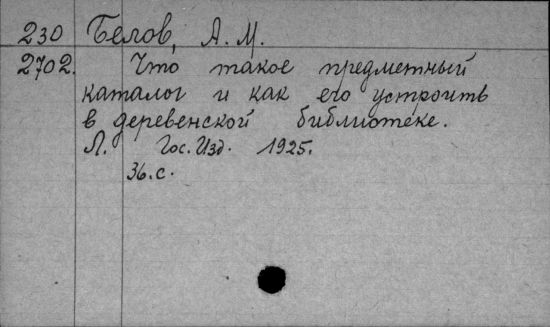 230 Белов, А. М.
2702. Что такое предметный
каталог и как его устроить
в деревенской библиотеке.
Л. Гос. Изд. 1925.
36. с.